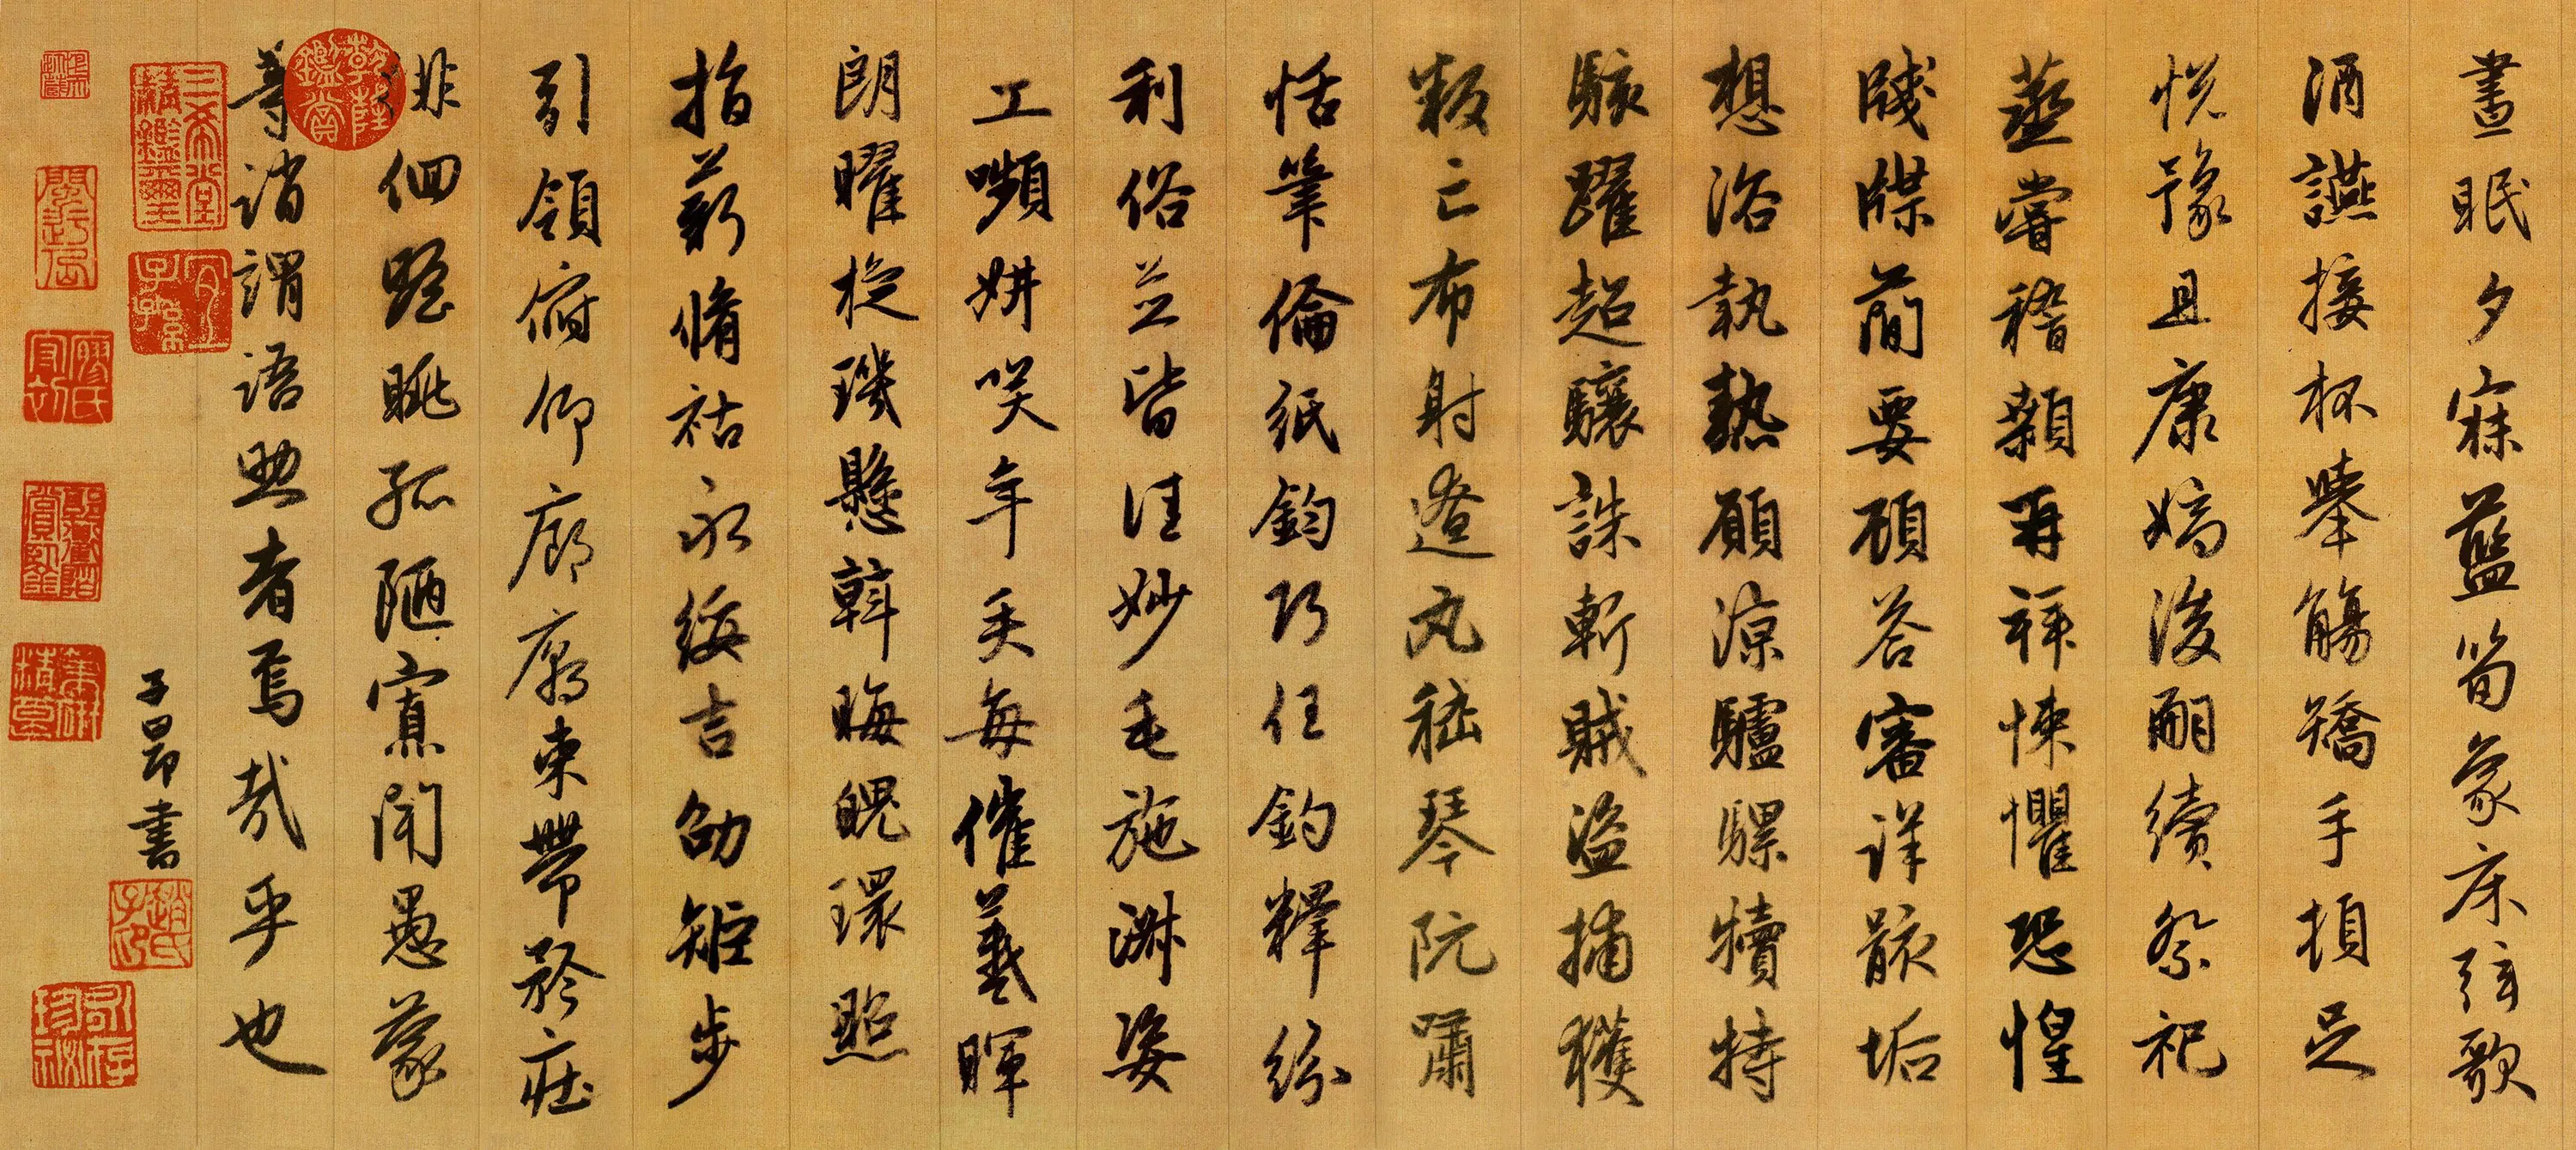 晝眠夕寐藍筍象床弦歌
酒讌接杯舉觴矯手頓足
悅豫且康嫡後嗣續祭祀
蒸嘗稽顙再拜悚懼恐惶
牋牒簡要顧答審詳骸垢
想浴執熱願涼驢騾犢特
駭躍超驤誅斬賊盜捕獲
叛亡布射遼丸嵇琴阮嘯
恬筆倫紙鈞巧任釣釋紛
利俗並皆佳妙毛施淑姿
工嚬妍笑年矢每催羲暉
朗曜旋璣懸斡晦魄環照
指薪脩祜永綏吉劭矩步
引領俯仰廊廟束帶矜莊
徘徊瞻眺孤陋寡聞愚蒙
等誚謂語助者焉哉乎也
乾隆鑑賞
子昂書
三希堂精鑑璽
宜子孫
趙氏子昂